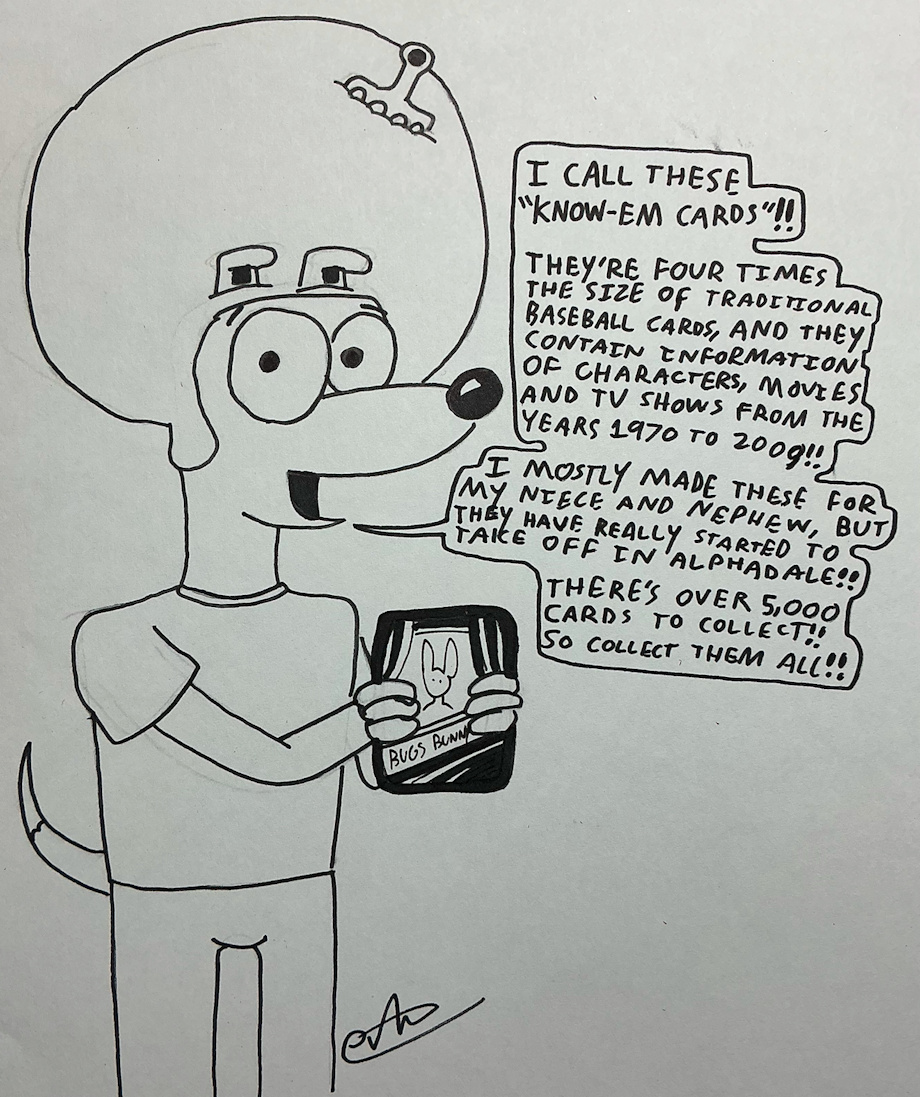 I CALL THESE
"KNOW-EM CARDS"!!
THEY'RE FOUR TIMES
THE SIZE OF TRADITIONAL
BASEBALL CARDS, AND THEY
CONTAIN INFORMATION
OF CHARACTERS, MOVIES
AND TV SHOWS FROM THE
YEARS 1970 TO 2009!!
I MOSTLY MADE THESE FOR
MY NIECE AND NEPHEW, BUT
THEY HAVE REALLY STARTED TO
TAKE OFF IN ALPHADALE!!
THERE'S OVER 5,000
CARDS TO COLLECT!!
SO COLLECT THEM ALL!!
BUGS BUNN